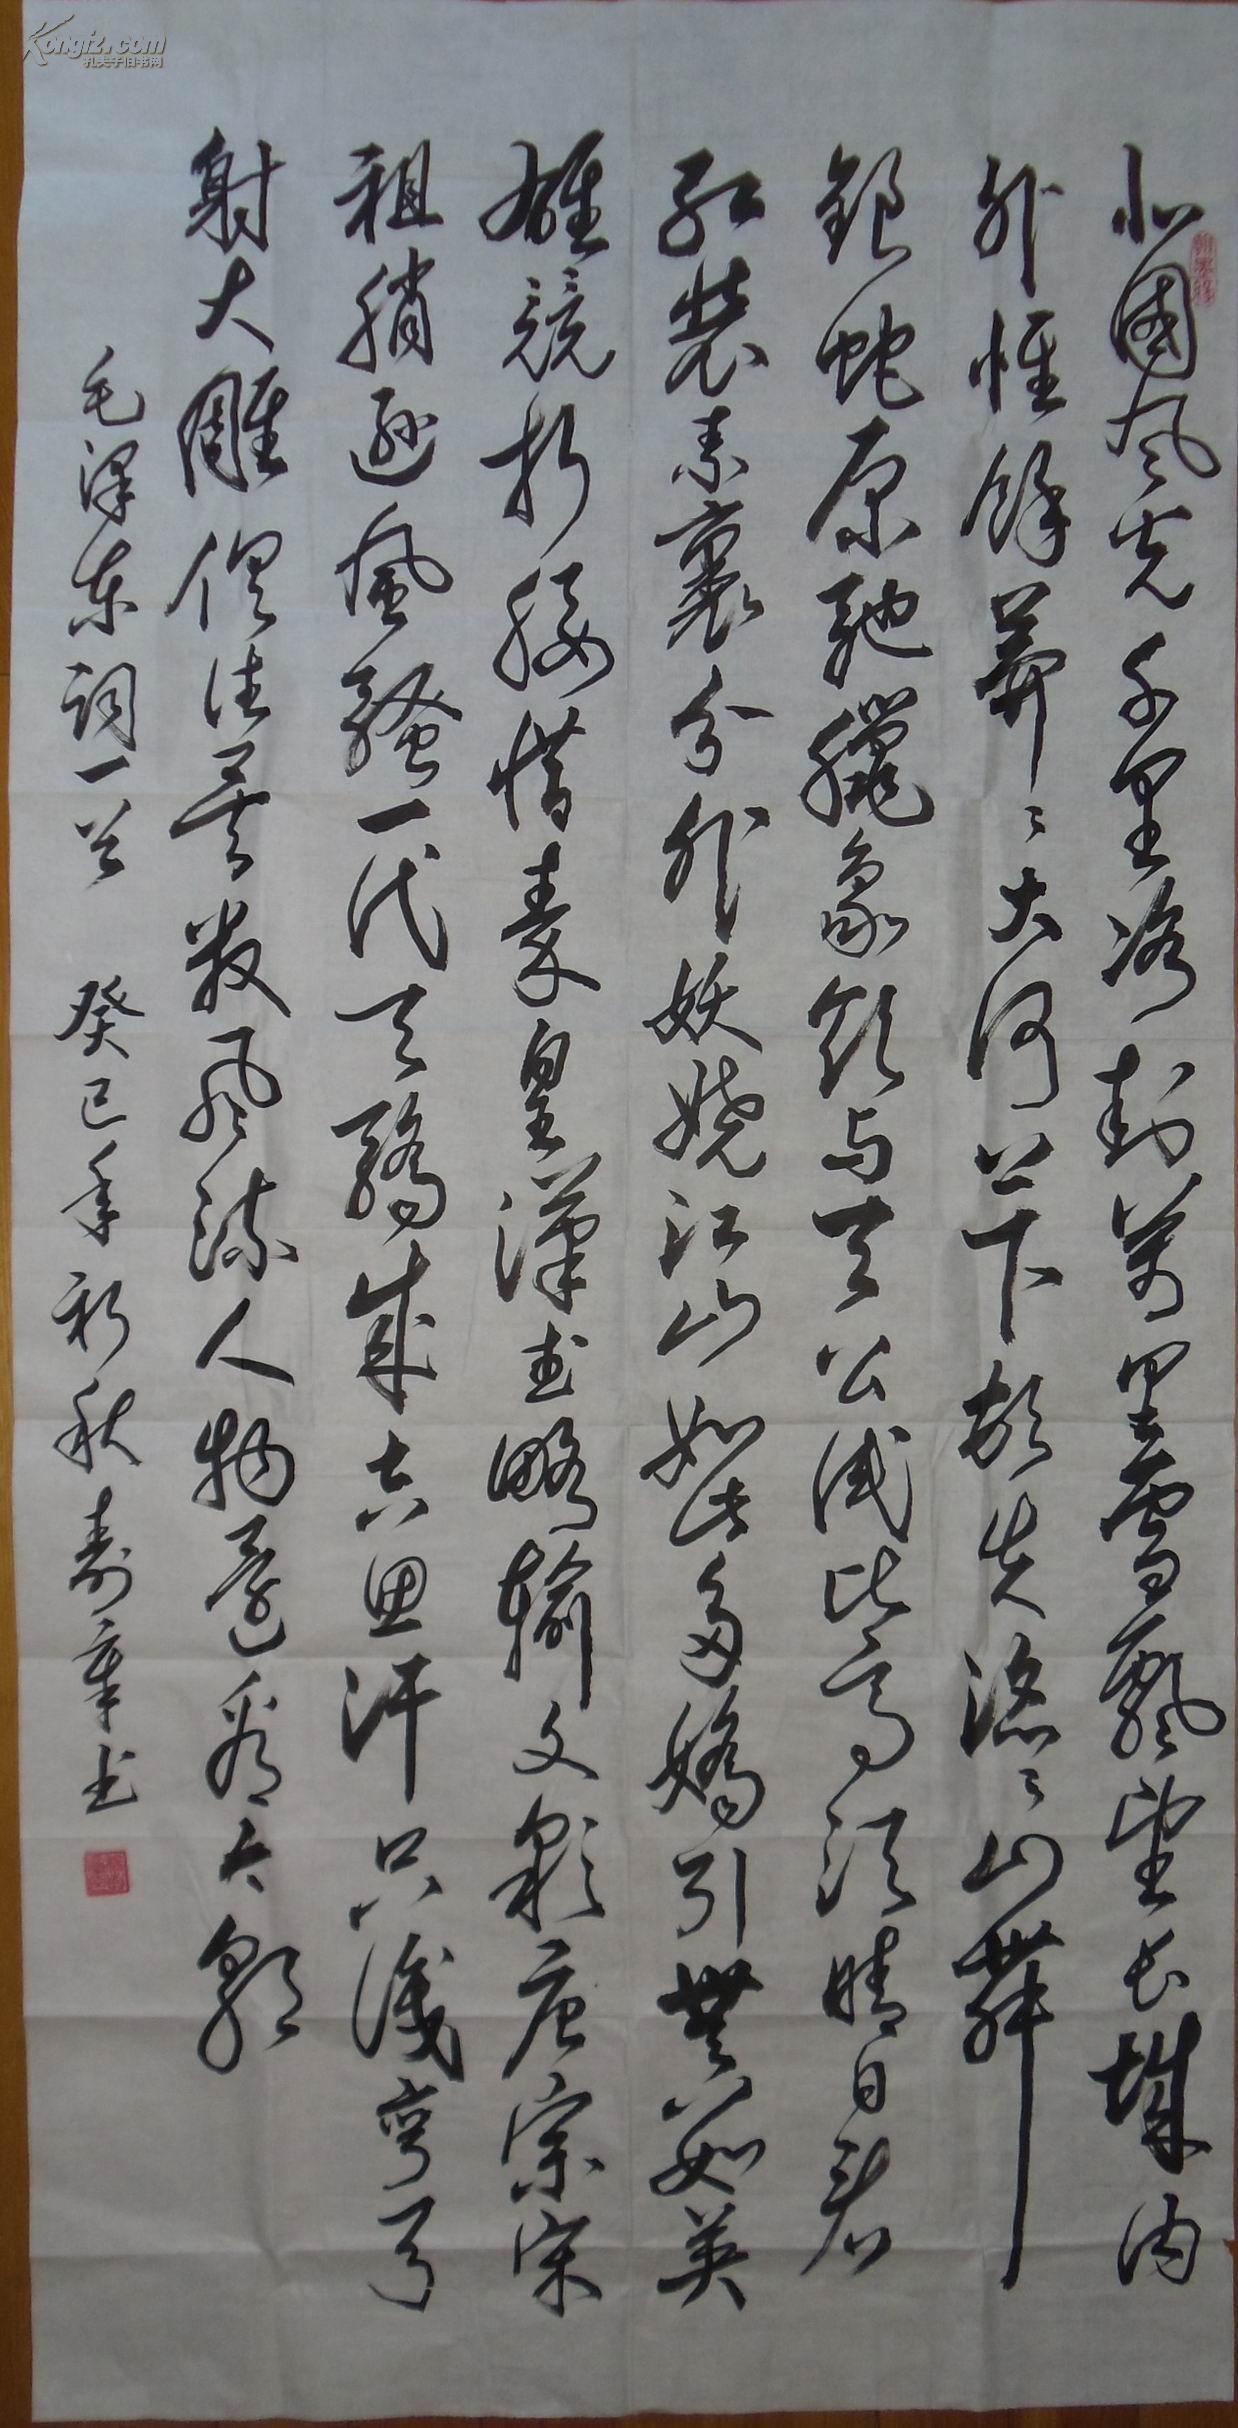 北國风光千里冰封萬里雪飄望长城内
外惟餘莽〻大河上下頓失滔〻山舞
銀蛇原馳臘象欲与天公試比高須晴日看
红装素裹分外妖娆江山如此多嬌引無數英
雄競折腰惜秦皇漢武略輸文彩唐宗宋
祖稍逊風騷一代天骄成吉思汗只識彎弓
射大雕俱往矣数风流人物還看今朝
毛泽东词一首 癸巳年初秋寿章书
Kongfz.com
孔夫子旧书网